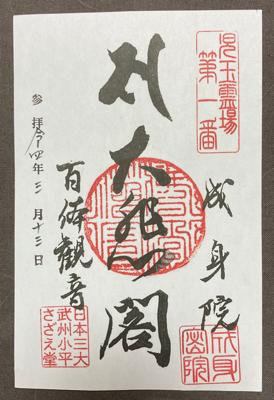 児玉霊場
第一番
成身院
成身
密院
大悲閣
百体觀音
日本三大
武州小平
さざえ堂
参拝令四年三月十三日